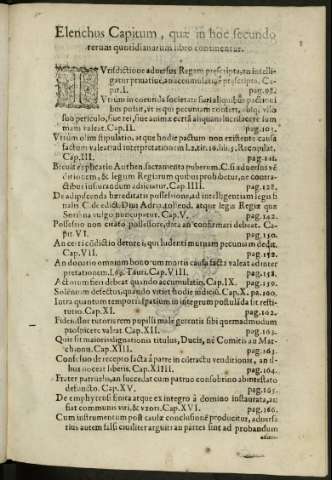 Elenchus Capitum, quæ in hoc secundo
rerum quotidianarum libro continentur.
IVrisdictione adversus Regem præscripta, an intelli-
gatur privativè, an accumulativè præscripta. Ca-
put. I. pag. 98.
Vtrùm in eorunda societate
bus posita, ut is qui pecuniam contert,
suo periculo, fiue rei, fiue animæ certâ aliquam lucri facere sum
mam valeat. Cap. II. pag. 103.
Vtrùm olim stipulatio, atque hodie pactum non existente causâ
factum valeat ad interpretationem l. 2. tit. 16. lib. 5. Recopilat.
Cap. III. pag. 121.
Brevit explicatio Authen. sacramenta puberum. C. si adversus vẽ
ditionem, & legum Regiarum quibus prohibetur, ne contra-
ctibus iusiurandum adiiciatur. Cap. IIII. pag. 128.
De adipiscenda hæreditatis possessione, ad intelligentiam legis fi
nalis C. de edicto Divi Adri. tollend. atque legis Regiæ quæ
Sorsina vulgo nuncupatur. Caput V. pag. 142.
Possessio non citato possessore, data an confirmari debeat. Ca-
put VI. pag. 150.
An certi cõdictio detur ei, qui ludenti mutuam pecuniam dedit.
Cap. VII. pag. 155.
An donatio omnium bonorum mortis causa facta valeat ad inter
pretationem. l. 69. Tauri. Cap. VIII. pag. 158.
Actionum fieri debeat quando accumulatio. Cap. IX. pag. 159.
Solẽnium defectus, quando vitiet hodie iudiciũ. Cap. X. pa. 100.
Intra quantum temporis spatium in integrum postulãda sit resti-
tutio. Cap. XI. pag. 162.
Fideiussor tutori rem pupilli malè gerentis sibi quemadmodum
prospicere valeat. Cap. XII. pag. 163.
Quis sit maior dignationis titulus, Ducis, nè Comitis an Mar-
chionis. Cap. XIII. pag. 163.
Confessio de recepto facta à patre in contractu venditionis, an fi-
lius noceat liberis. Cap. XIIII. pag. 164.
Frater patruelis, an succedat cum patruo consobrino ab intestato
defuncto. Cap. XV. pag. 165.
De emphyteusi finita atque ex integro à domino instaurata, an
fiat communis viri, & uxoris. Cap. XVI. pag. 166.
Cum instrumentum post causæ conclusionẽ producitur, adversa
rius autem falsi civiliter arguit: an partes sint ad probandum